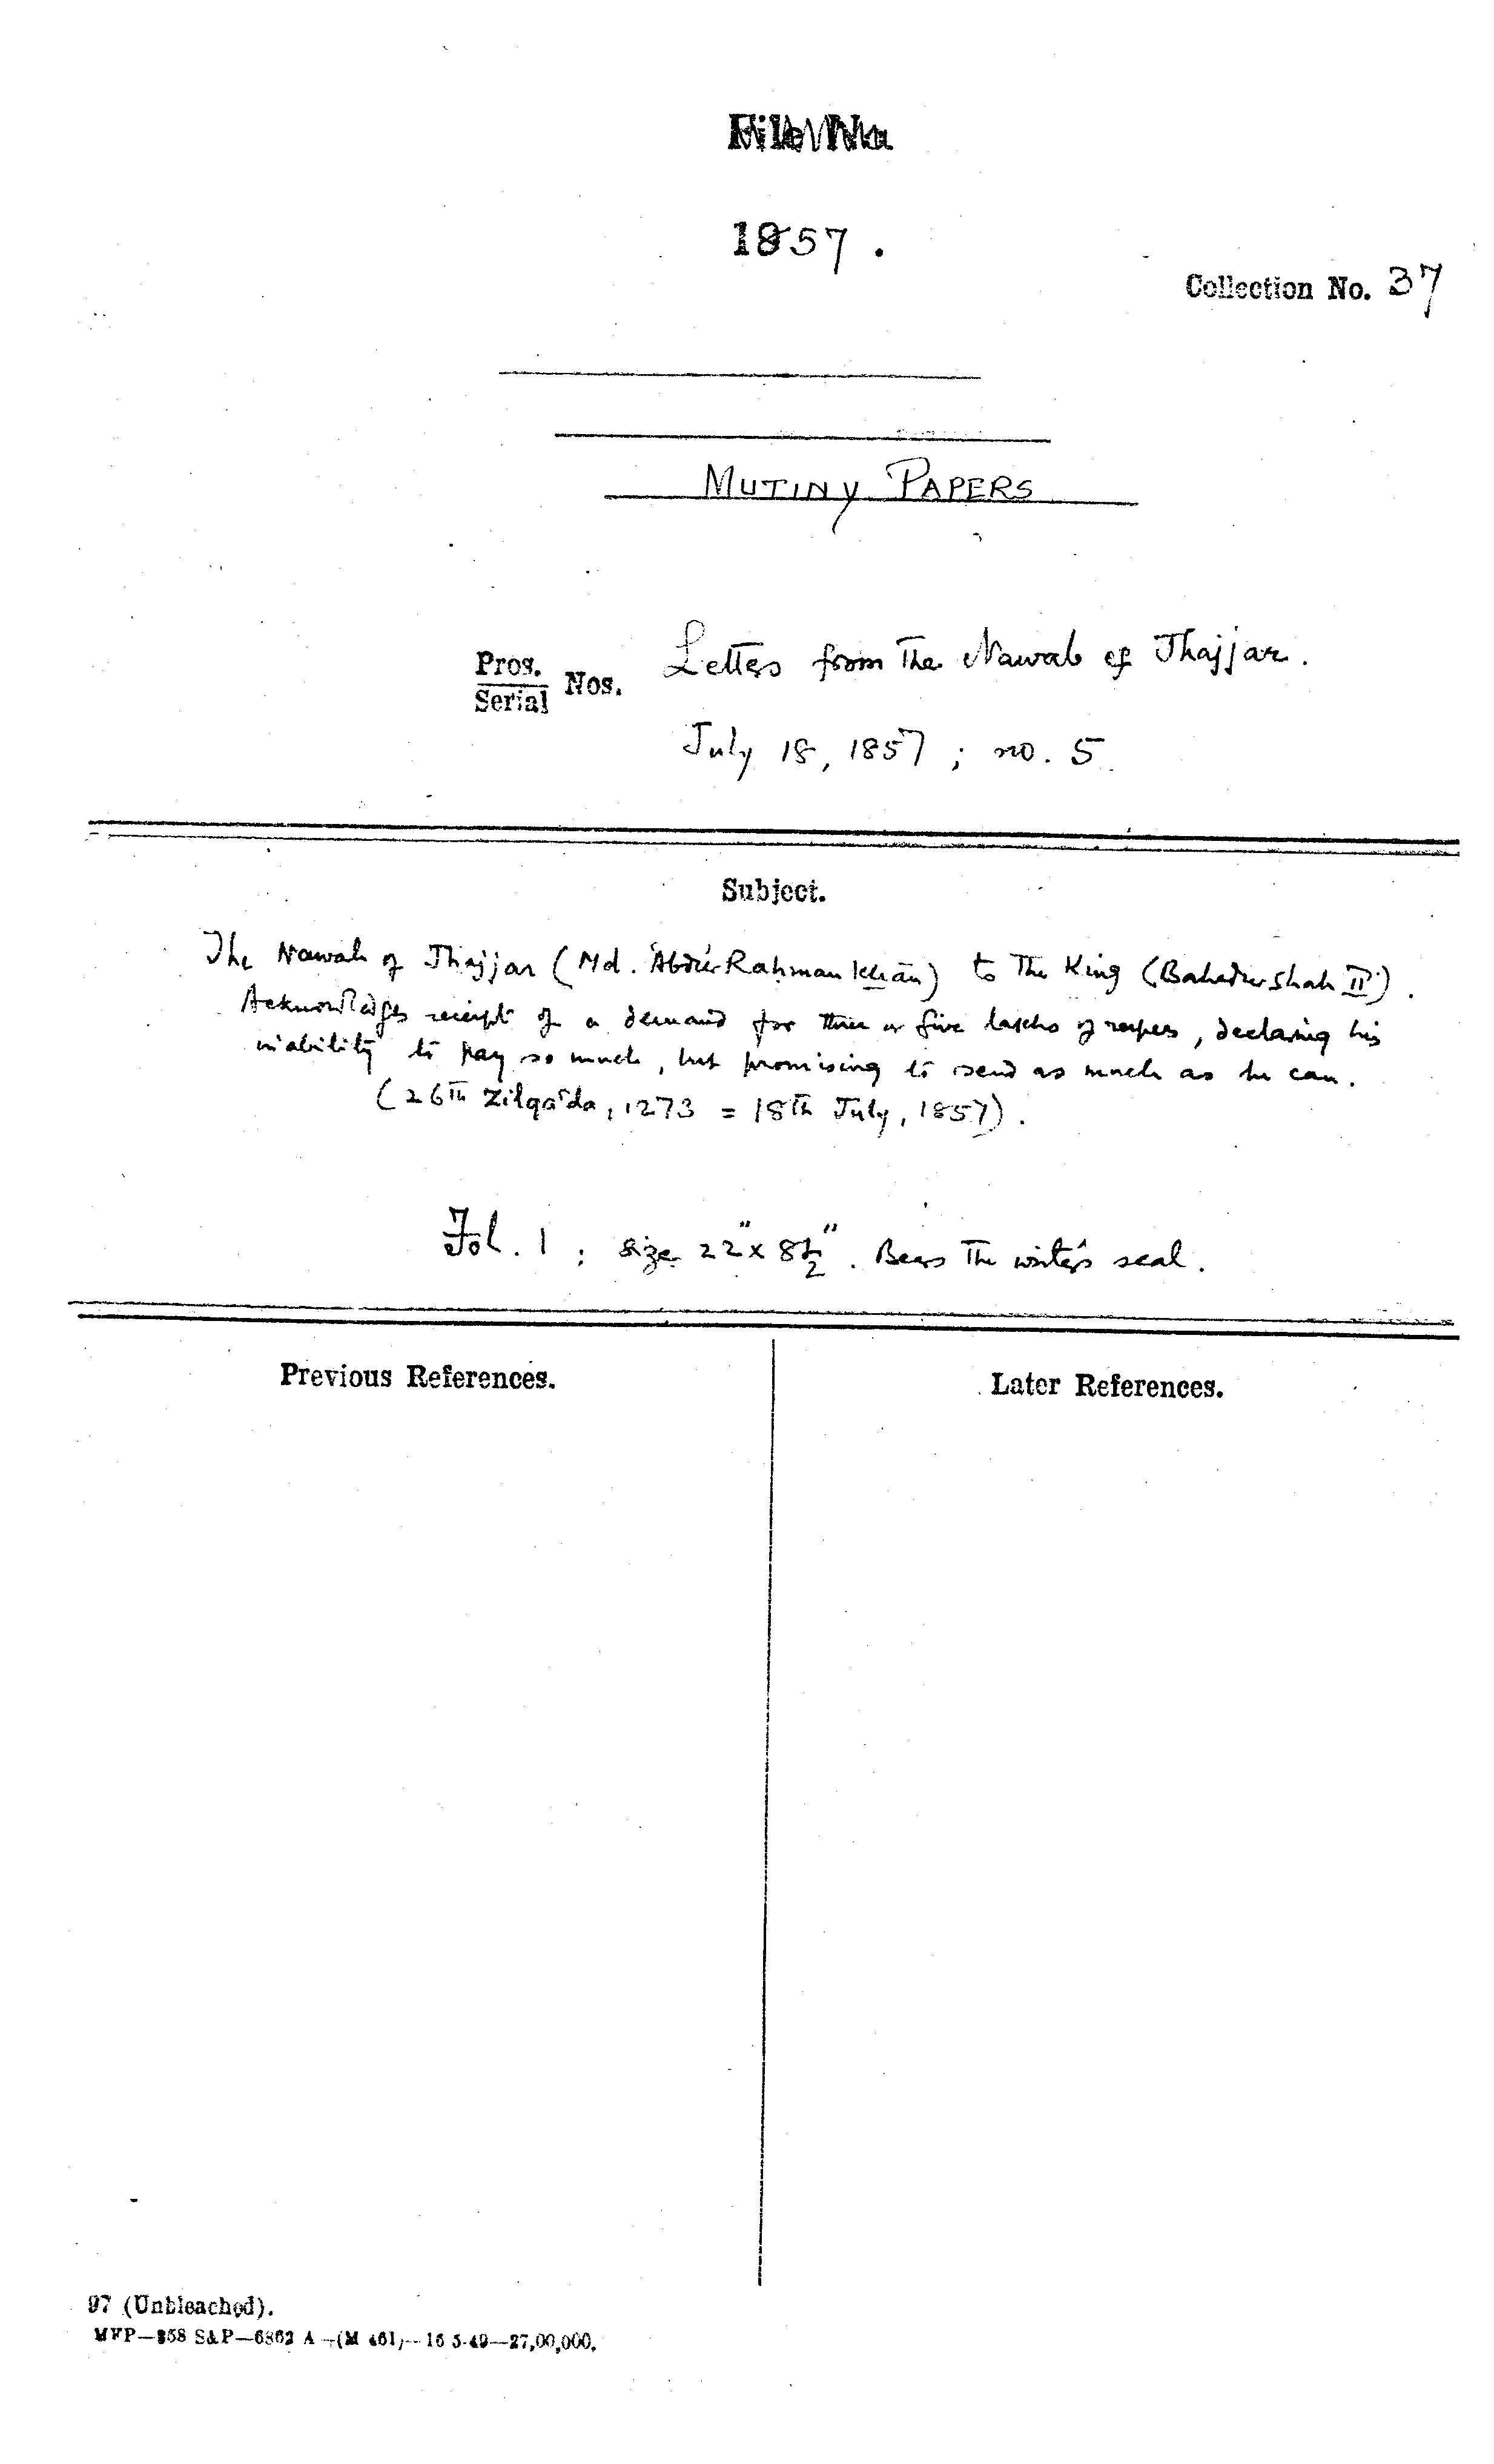 File No.
1857.
Collection No. 37
MUTINY PAPERS
Pros.
Serial Nos. Letters from the Nawab of Jhajjar.
July 18, 1857; no. 5.
Subject.
The Nawab of Jhajjar (Md. 'Abdur Rahman Khān) to the King (Bahadur Shah II).
Acknowledges receipt of a demand for three or five lakhs of rupees, declaring his
inability to pay so much, but promising to send as much as he can.
(26th Zilqa'da, 1273 = 18th July, 1857).
Fol. 1; size 22" x 8½". Bears the writer's seal.
Previous References.
Later References.
97 (Unbleached).
MFP—858 S&P—6862 A—(M 461)—16-5-49—27,00,000.